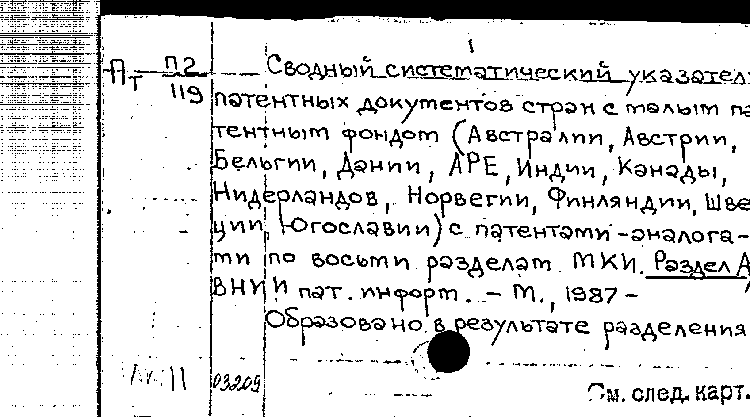 Пт П2
119
Сводный систематический указатель
патентных документов стран с малым па
тентным фондом (Австралии, Австрии,
Бельгии, Дании, АРЕ, Индии, Канады,
Нидерландов, Норвегии, Финляндии, Шве
ции, Югославии) с патентами-аналога-
ми по восьми разделам МКИ. Раздел А
ВНИИ пат. информ. - М., 1987 -
Образовано в результате разделения
11 03209
См. след. карт.